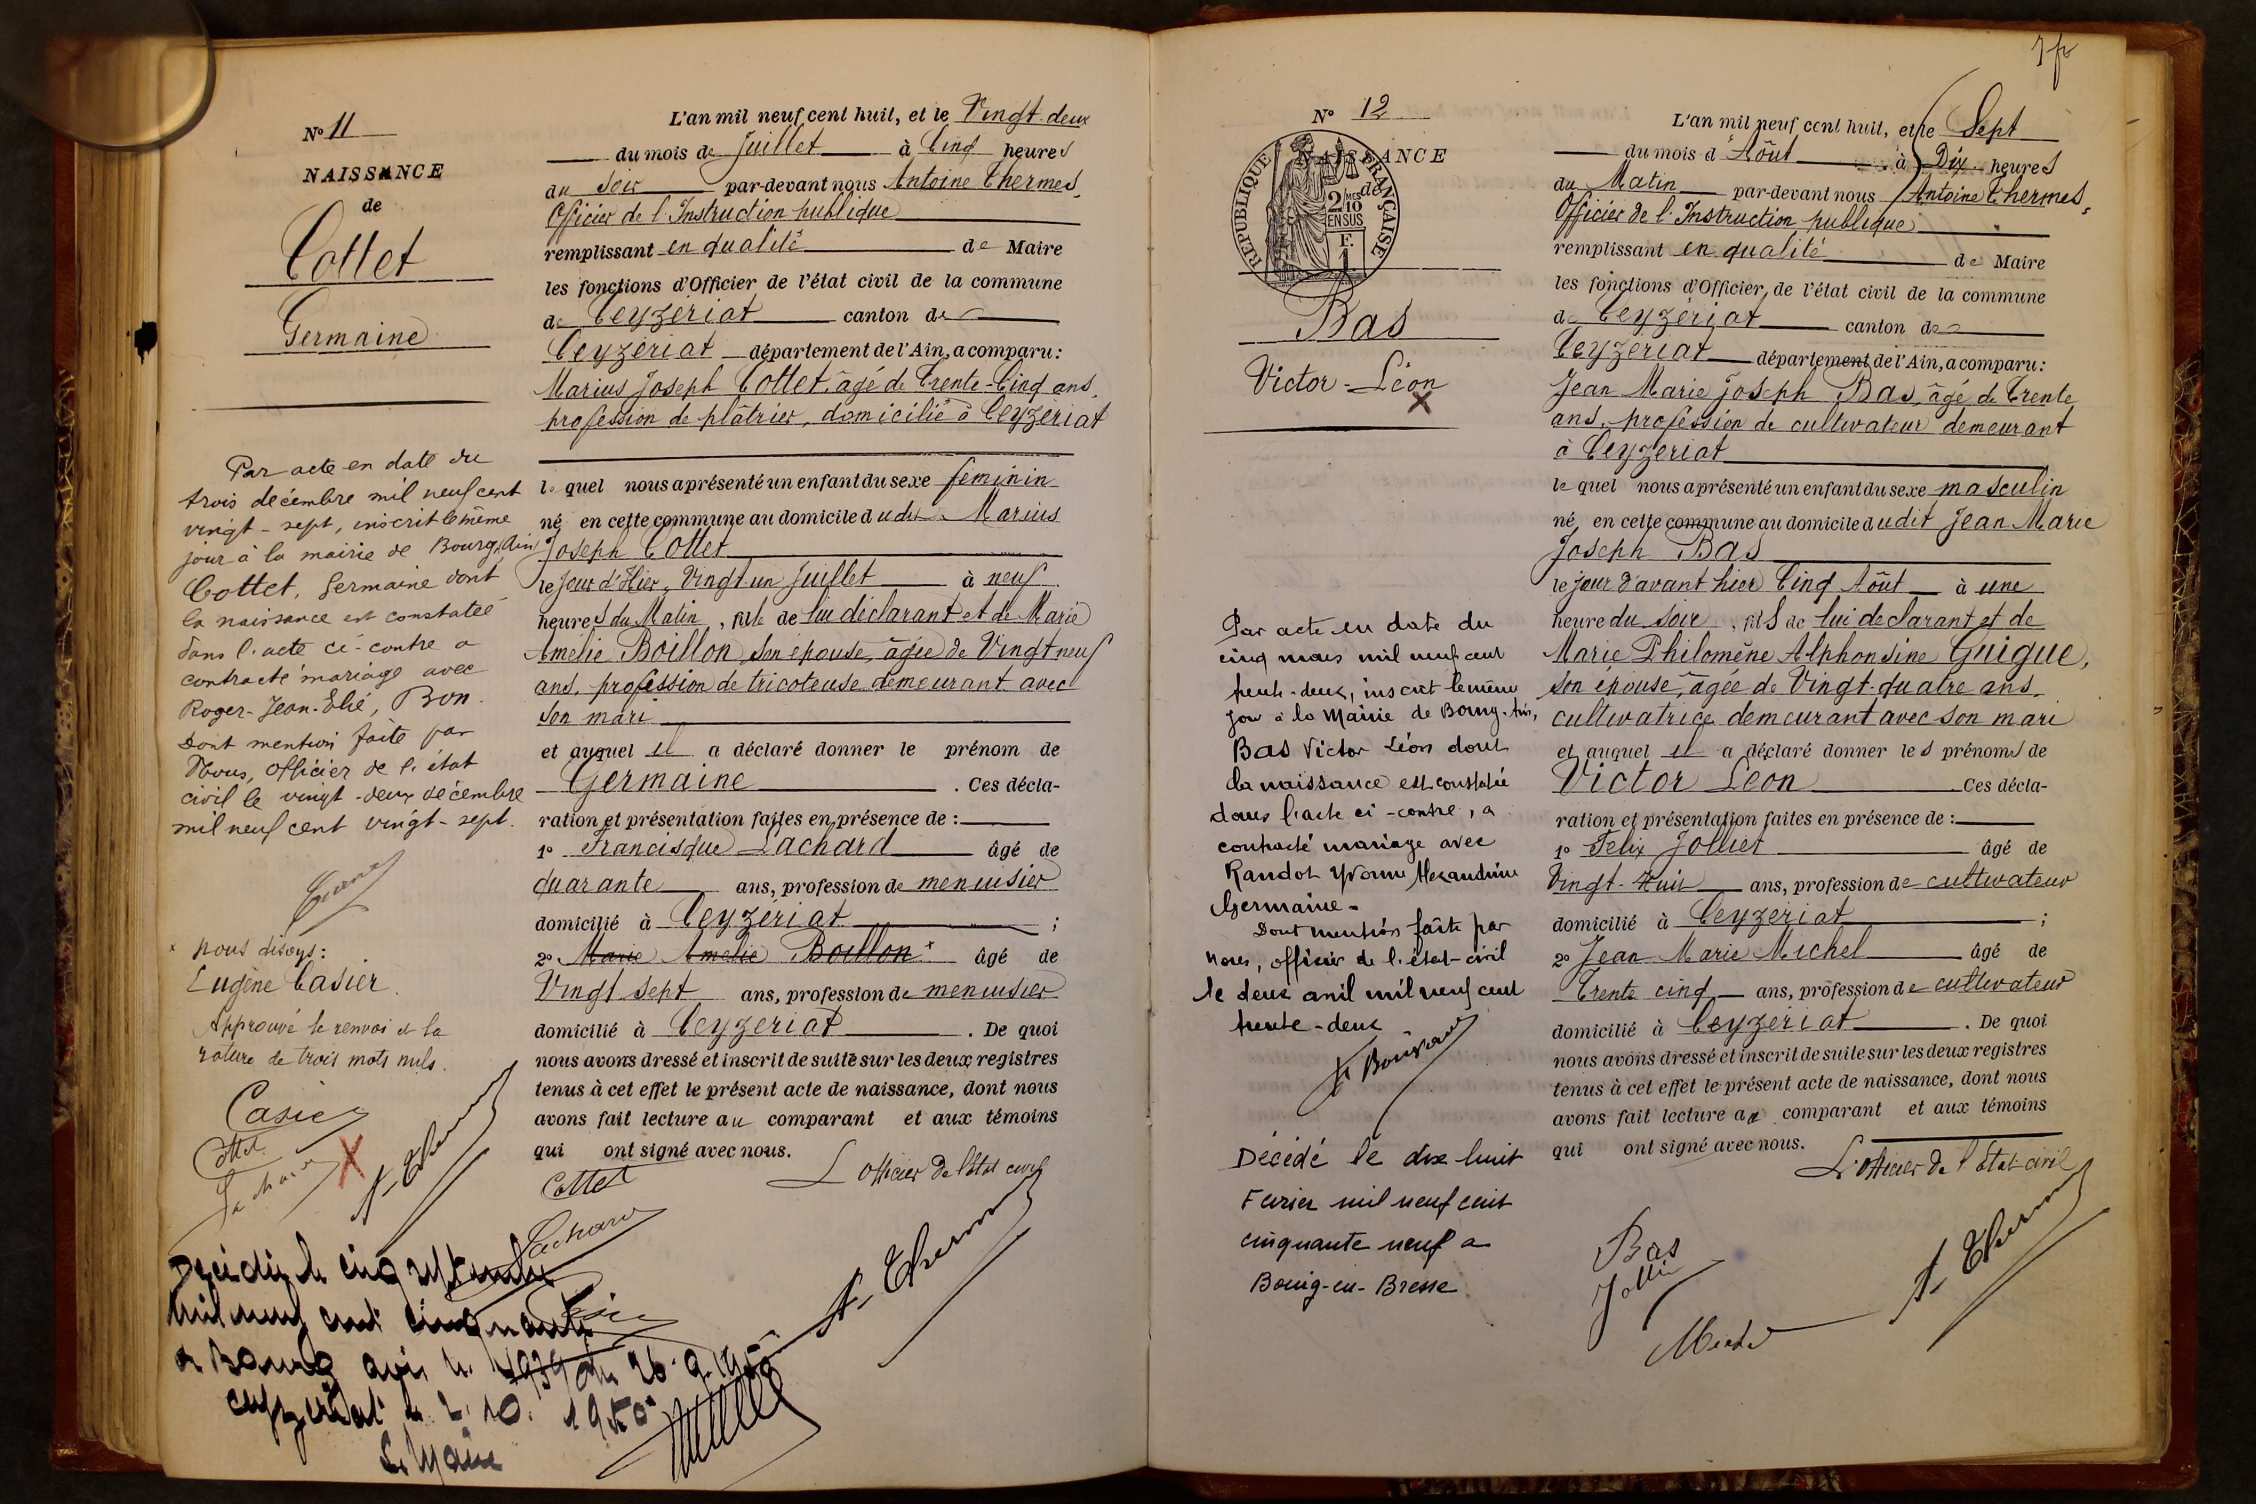 N° 11
NAISSANCE
de
Cottet
Germaine
Par acte en date du
trois décembre mil neuf cent
vingt-sept, inscrit le même
jour à la mairie de Bourg, Ain
Cottet, Germaine dont
la naissance est constatée
dans l'acte ci-contre a
contracté mariage avec
Roger-Jean-Elié, Bon.
Dont mention faite par
Nous, officier de l'état
civil le vingt-deux décembre
mil neuf cent vingt-sept.
x nous disons:
Eugène Casier.
Approuvé le renvoi et la
rature de trois mots nuls.
Casier
Cottet
Lachard
A. Thermes
Décédée le cinq septembre
mil neuf cent cinquante
à Bourg avis n. 1939 du 26.9.1950
Ceyzériat le 2.10.1950
Le Maire
L'an mil neuf cent huit, et le Vingt-deux
du mois de Juillet à Cinq heures
du Soir par-devant nous Antoine Thermes,
Officier de l'Instruction publique
remplissant en qualité de Maire
les fonctions d'Officier de l'état civil de la commune
de Ceyzériat canton de
Ceyzériat département de l'Ain, a comparu:
Marius Joseph Cottet, âgé de Trente-Cinq ans,
profession de plâtrier, domicilié à Ceyzériat
le quel nous a présenté un enfant du sexe féminin
né en cette commune au domicile dudit Marius
Joseph Cottet
le jour d'Hier, Vingt-un Juillet à neuf
heures du Matin, fille de lui déclarant et de Marie
Amélie Boillon, son épouse, âgée de Vingt neuf
ans, profession de tricoteuse demeurant avec
son mari
et auquel il a déclaré donner le prénom de
Germaine. Ces décla-
ration et présentation faites en présence de :
1° Francisque Lachard âgé de
quarante ans, profession de menuisier
domicilié à Ceyzériat ;
2° Marie Amélie Boillon x âgé de
Vingt sept ans, profession de menuisier
domicilié à Ceyzériat. De quoi
nous avons dressé et inscrit de suite sur les deux registres
tenus à cet effet le présent acte de naissance, dont nous
avons fait lecture au comparant et aux témoins
qui ont signé avec nous.
L'officier de l'Etat civil
Cottet
Lachard
Casier
A. Thermes
N° 12
NAISSANCE
de
REPUBLIQUE FRANÇAISE
2/10 MES
EN SUS
F.
1
Bas
Victor-Léon
Par acte en date du
cinq mars mil neuf cent
trente-deux, inscrit le même
jour à la Mairie de Bourg. Ain,
Bas Victor Léon dont
la naissance est constatée
dans l'acte ci-contre, a
contracté mariage avec
Randot Yvonne Alexandrine
Germaine.
Dont mention faite par
nous, officier de l'état-civil
le deux avril mil neuf cent
trente-deux
Décédé le dix huit
Fevrier mil neuf cent
cinquante neuf a
Bourg-en-Bresse
L'an mil neuf cent huit, et le Sept
du mois d'Aôut à Dix heures
du Matin par-devant nous Antoine Thermes,
Officier de l'Instruction publique
remplissant en qualité de Maire
les fonctions d'Officier, de l'état civil de la commune
de Ceyzériat canton de
Ceyzériat département de l'Ain, a comparu:
Jean Marie Joseph Bas, âgé de Trente
ans, profession de cultivateur demeurant
à Ceyzeriat
le quel nous a présenté un enfant du sexe masculin
né, en cette commune au domicile dudit Jean Marie
Joseph Bas
le jour d'avant hier Cinq Aôut à une
heure du soir, fils de lui déclarant et de
Marie Philomène Alphonsine Guigue,
son épouse, âgée de Vingt-quatre ans,
cultivatrice demeurant avec son mari
et auquel il a déclaré donner les prénoms de
Victor Léon Ces décla-
ration et présentation faites en présence de :
1° Felix Jolliet âgé de
Vingt-Huit ans, profession de cultivateur
domicilié à Ceyzériat ;
2° Jean Marie Michel âgé de
Trente cinq ans, profession de cultivateur
domicilié à Ceyzériat. De quoi
nous avons dressé et inscrit de suite sur les deux registres
tenus à cet effet le présent acte de naissance, dont nous
avons fait lecture au comparant et aux témoins
qui ont signé avec nous.
L'officier de l'Etat-civil
Bas
Jolliet
Michel
A. Thermes